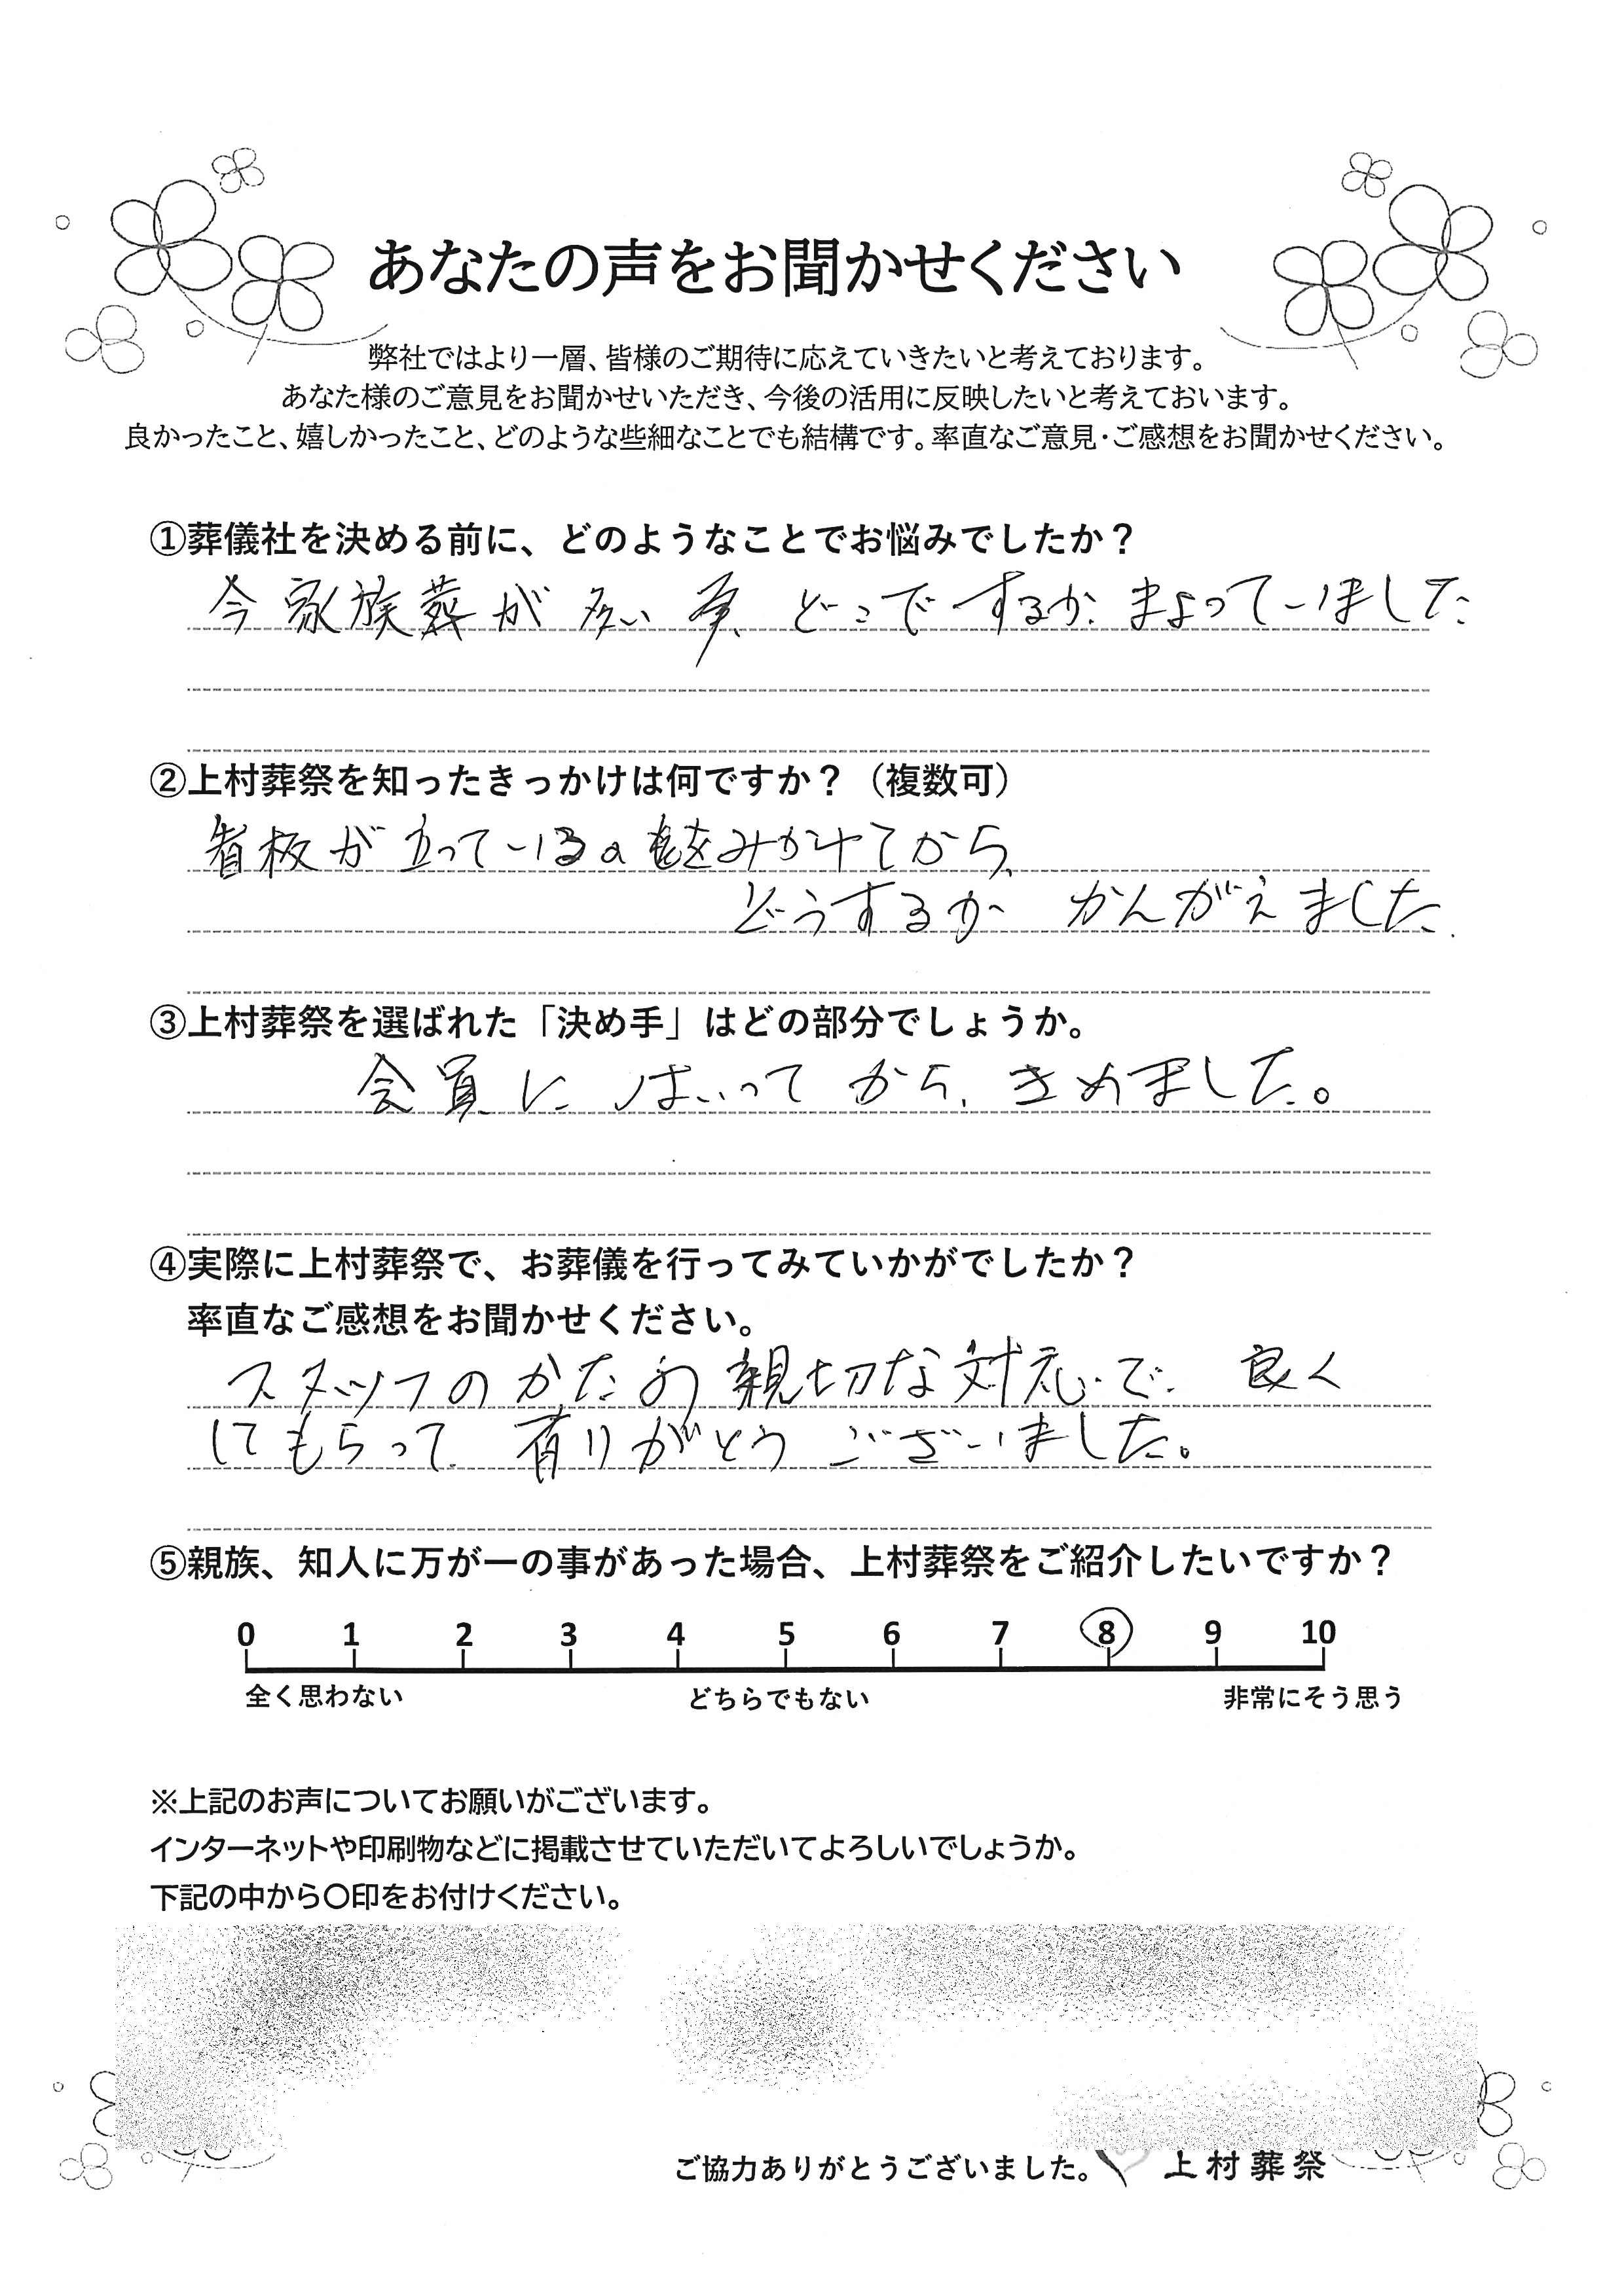 あなたの声をお聞かせください
弊社ではより一層、皆様のご期待に応えていきたいと考えております。
あなた様のご意見をお聞かせいただき、今後の活用に反映したいと考えておいます。
良かったこと、嬉しかったこと、どのような些細なことでも結構です。率直なご意見・ご感想をお聞かせください。
①葬儀社を決める前に、どのようなことでお悩みでしたか？
今家族葬が多い事、どこでするか、まよっていました
②上村葬祭を知ったきっかけは何ですか？（複数可）
看板が立っているのをみかけてから、
どうするか かんがえました.
③上村葬祭を選ばれた「決め手」はどの部分でしょうか。
会員に はいって から、きめました。
④実際に上村葬祭で、お葬儀を行ってみていかがでしたか？
率直なご感想をお聞かせください。
スタッフのかたの親切な対応で、良く
してもらって 有りがとう ございました。
⑤親族、知人に万が一の事があった場合、上村葬祭をご紹介したいですか？
0 1 2 3 4 5 6 7 8 9 10
全く思わない どちらでもない 非常にそう思う
※上記のお声についてお願いがございます。
インターネットや印刷物などに掲載させていただいてよろしいでしょうか。
下記の中から〇印をお付けください。
ご協力ありがとうございました。 上村葬祭